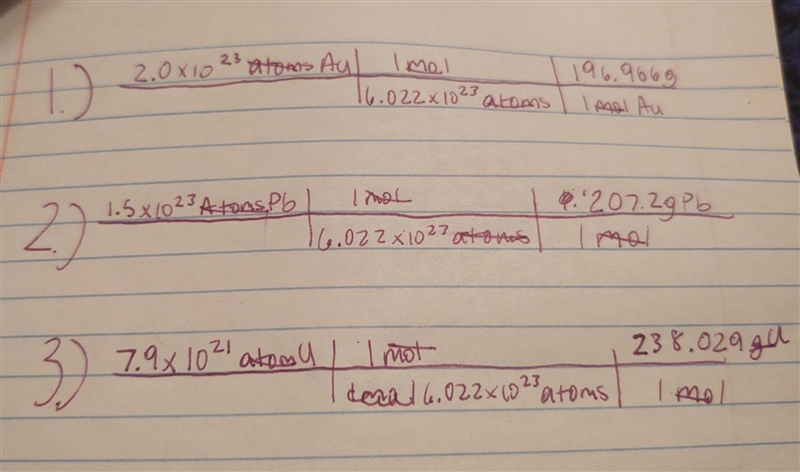 1.) 2.0x10²³ atoms Au | 1 mol | 196.966g
6.022x10²³ atoms | 1 mol Au
2.) 1.5x10²³ Atoms Pb | 1 mol | 207.2g Pb
6.022x10²³ atoms | 1 mol
3.) 7.9x10²¹ atom U | 1 mol | 238.029 g U
6.022x10²³ atoms | 1 mol